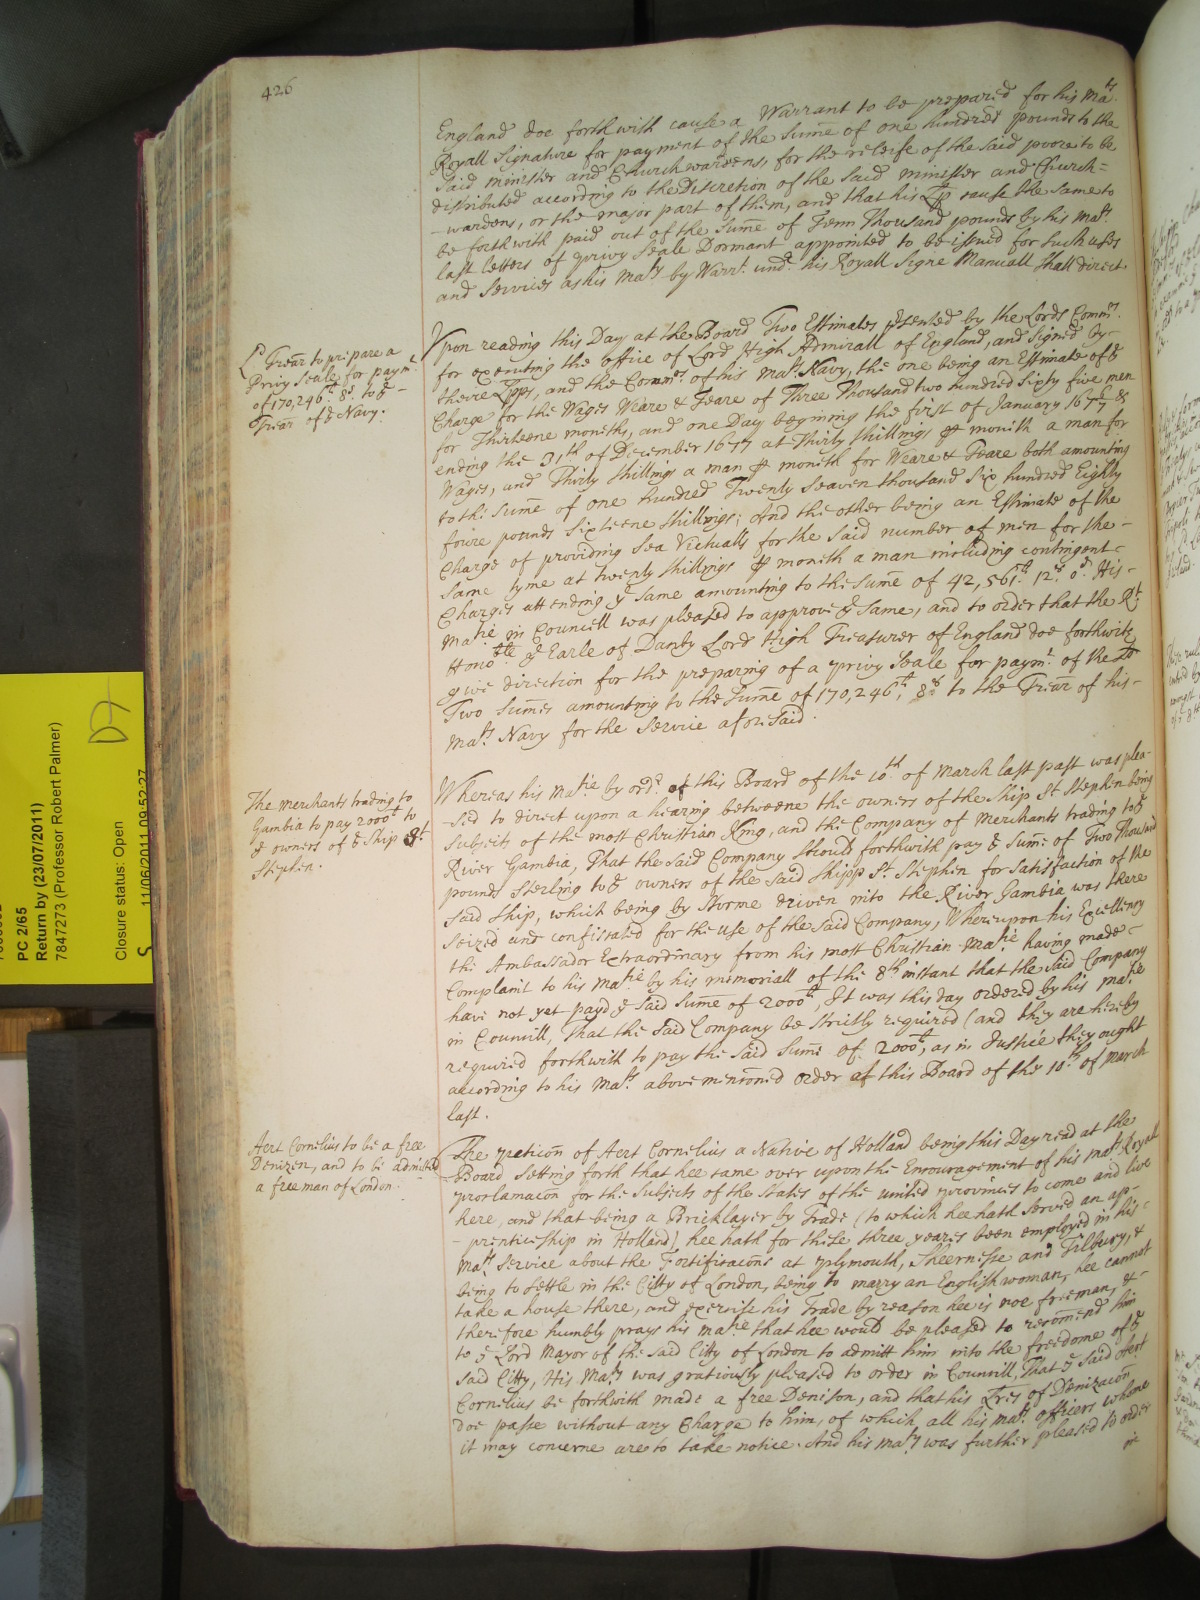 426
England doe forthwith cause a Warrant to be prepared for his Ma.ts
Royall Signature for payment of the Sume of one hundred pounds to the
said minister and Churchwardens, for the releife of the said poore to be
distributed according to the Discretion of the said minister and Church=
-wardens, or the major part of them, and that his Lp cause the same to
be forthwith paid out of the Sume of Tenn Thousand pounds by his Ma.ts
last letters of privy Seale Dormant appointed to be issued for such uses
and Services as his Ma.ty by Warr.t und.r his Royall Signe Manuall shall direct
L.d Trear to prepare a
Privy Seale for paym.t
of 170,246.li 8.s to ye -
Trear of ye Navy:
Vpon reading this Day at the Board Two Estimates psented by the Lords Comm.rs
for executing the office of Lord High Admirall of England, and Signed by-
theire Lpps, and the Comm.rs of his Ma.ts Navy, the one being an Estimate of ye
Charge for the Wages Weare & Teare of Three Thousand two hundred Sixty five men
for Thirteene moneths, and one Day begining the first of January 167 6/7 &
ending the 31th of December 1677 at Thirty shillings p moneth a man for
Wages, and Thirty shillings a man p moneth for Weare & Teare both amounting
to the sume of one hundred Twenty Seaven thousand Six hundred Eighty
foure pounds sixteene shillings; And the other being an Estimate of the
Charge of providing Sea Victualls for the said number of men for the -
Same tyme at twenty shillings p moneth a man including contingent-
Charges attending ye same amounting to the sume of 42,561.li 12.s 0.d His-
Ma.tie in Councill was pleased to approve ye Same, and to order that the R.t
Hono.ble ye Earle of Danby Lord High Treasurer of England doe forthwith
give direction for the preparing of a privy Seale for paym.t of the sd
Two sumes amounting to the sume of 170,246.li, 8.s to the Trear of his-
Ma.ts Navy for the Service aforesaid.
The merchants trading to
Gambia to pay 2000.li to
ye owners of ye Ship St.
Stephen.
Whereas his Ma.tie by ord.r of this Board of the 10.th of March last past was plea-
-sed to direct upon a hearing betweene the owners of the Ship St Stephen being
Subjects of the most Christian King, and the Company of Merchants trading to ye
River Gambia, That the said Company should forthwith pay ye Sume of Two Thousand
pounds sterling to ye owners of the said Shipp St. Stephen for Satisfaction of the
said Ship, which being by storme driven into the River Gambia was there
seized and confiscated for the use of the said Company, Whereupon his Excellency
the Ambassador Extraordinary from his most Christian Ma.tie having made-
Complaint to his Ma.tie by his memoriall of the 8th instant that the said Company
have not yet payd ye said Sume of 2000.li, It was this day ordered by his Ma.tie
in Councill, That the said Company be strictly required (and they are hereby
required forthwith to pay the said Sume of 2000.li, as in Justice they ought
according to his Ma.ts above mentioned order at this Board of the 10.th of March
last.
Aert Cornelius to be a free
Denizen, and to be admitted
a free man of London.
The peticon of Aert Cornelius a Native of Holland being this Day read at the
Board Setting forth that hee came over upon the Encouragement of his Ma.ts Royall
proclamacon for the Subjects of the States of the united provinces to come and live
here, and that being a Bricklayer by Trade (to which hee hath served an ap-
-prenticeship in Holland) hee hath for these three yeares been employed in his-
Ma.ts service about the Fortificacons at Plymouth, Sheernesse and Tilbury, &
being to settle in the Citty of London, being to marry an Englishwoman, hee cannot
take a house there, and exercise his Trade by reason hee is noe freeman, &-
therefore humbly prays his Ma.tie that hee would be pleased to recomend him
to ye Lord Mayor of the said Citty of London to admitt him into the freedome of ye
said Citty, His Ma.ty was gratiously pleased to order in Councill, That ye said Aert
Cornelius be forthwith made a free Denison, and that his Lres of Denizacon
doe passe without any Charge to him, of which all his Ma.ts officers whome
it may concerne are to take notice. And his Ma.ty was further pleased to order
PC 2/65
Return by (23/07/2011)
7847273 (Professor Robert Palmer)
Closure status: Open
S 11/06/2011 09:52:27
D7